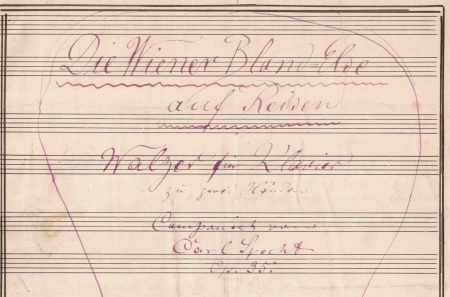 Die Wiener Blond=Else
auf Reisen
Walzer für Klavier
zu zwei Händen
Componiert von
Carl Specht
Op. 35.